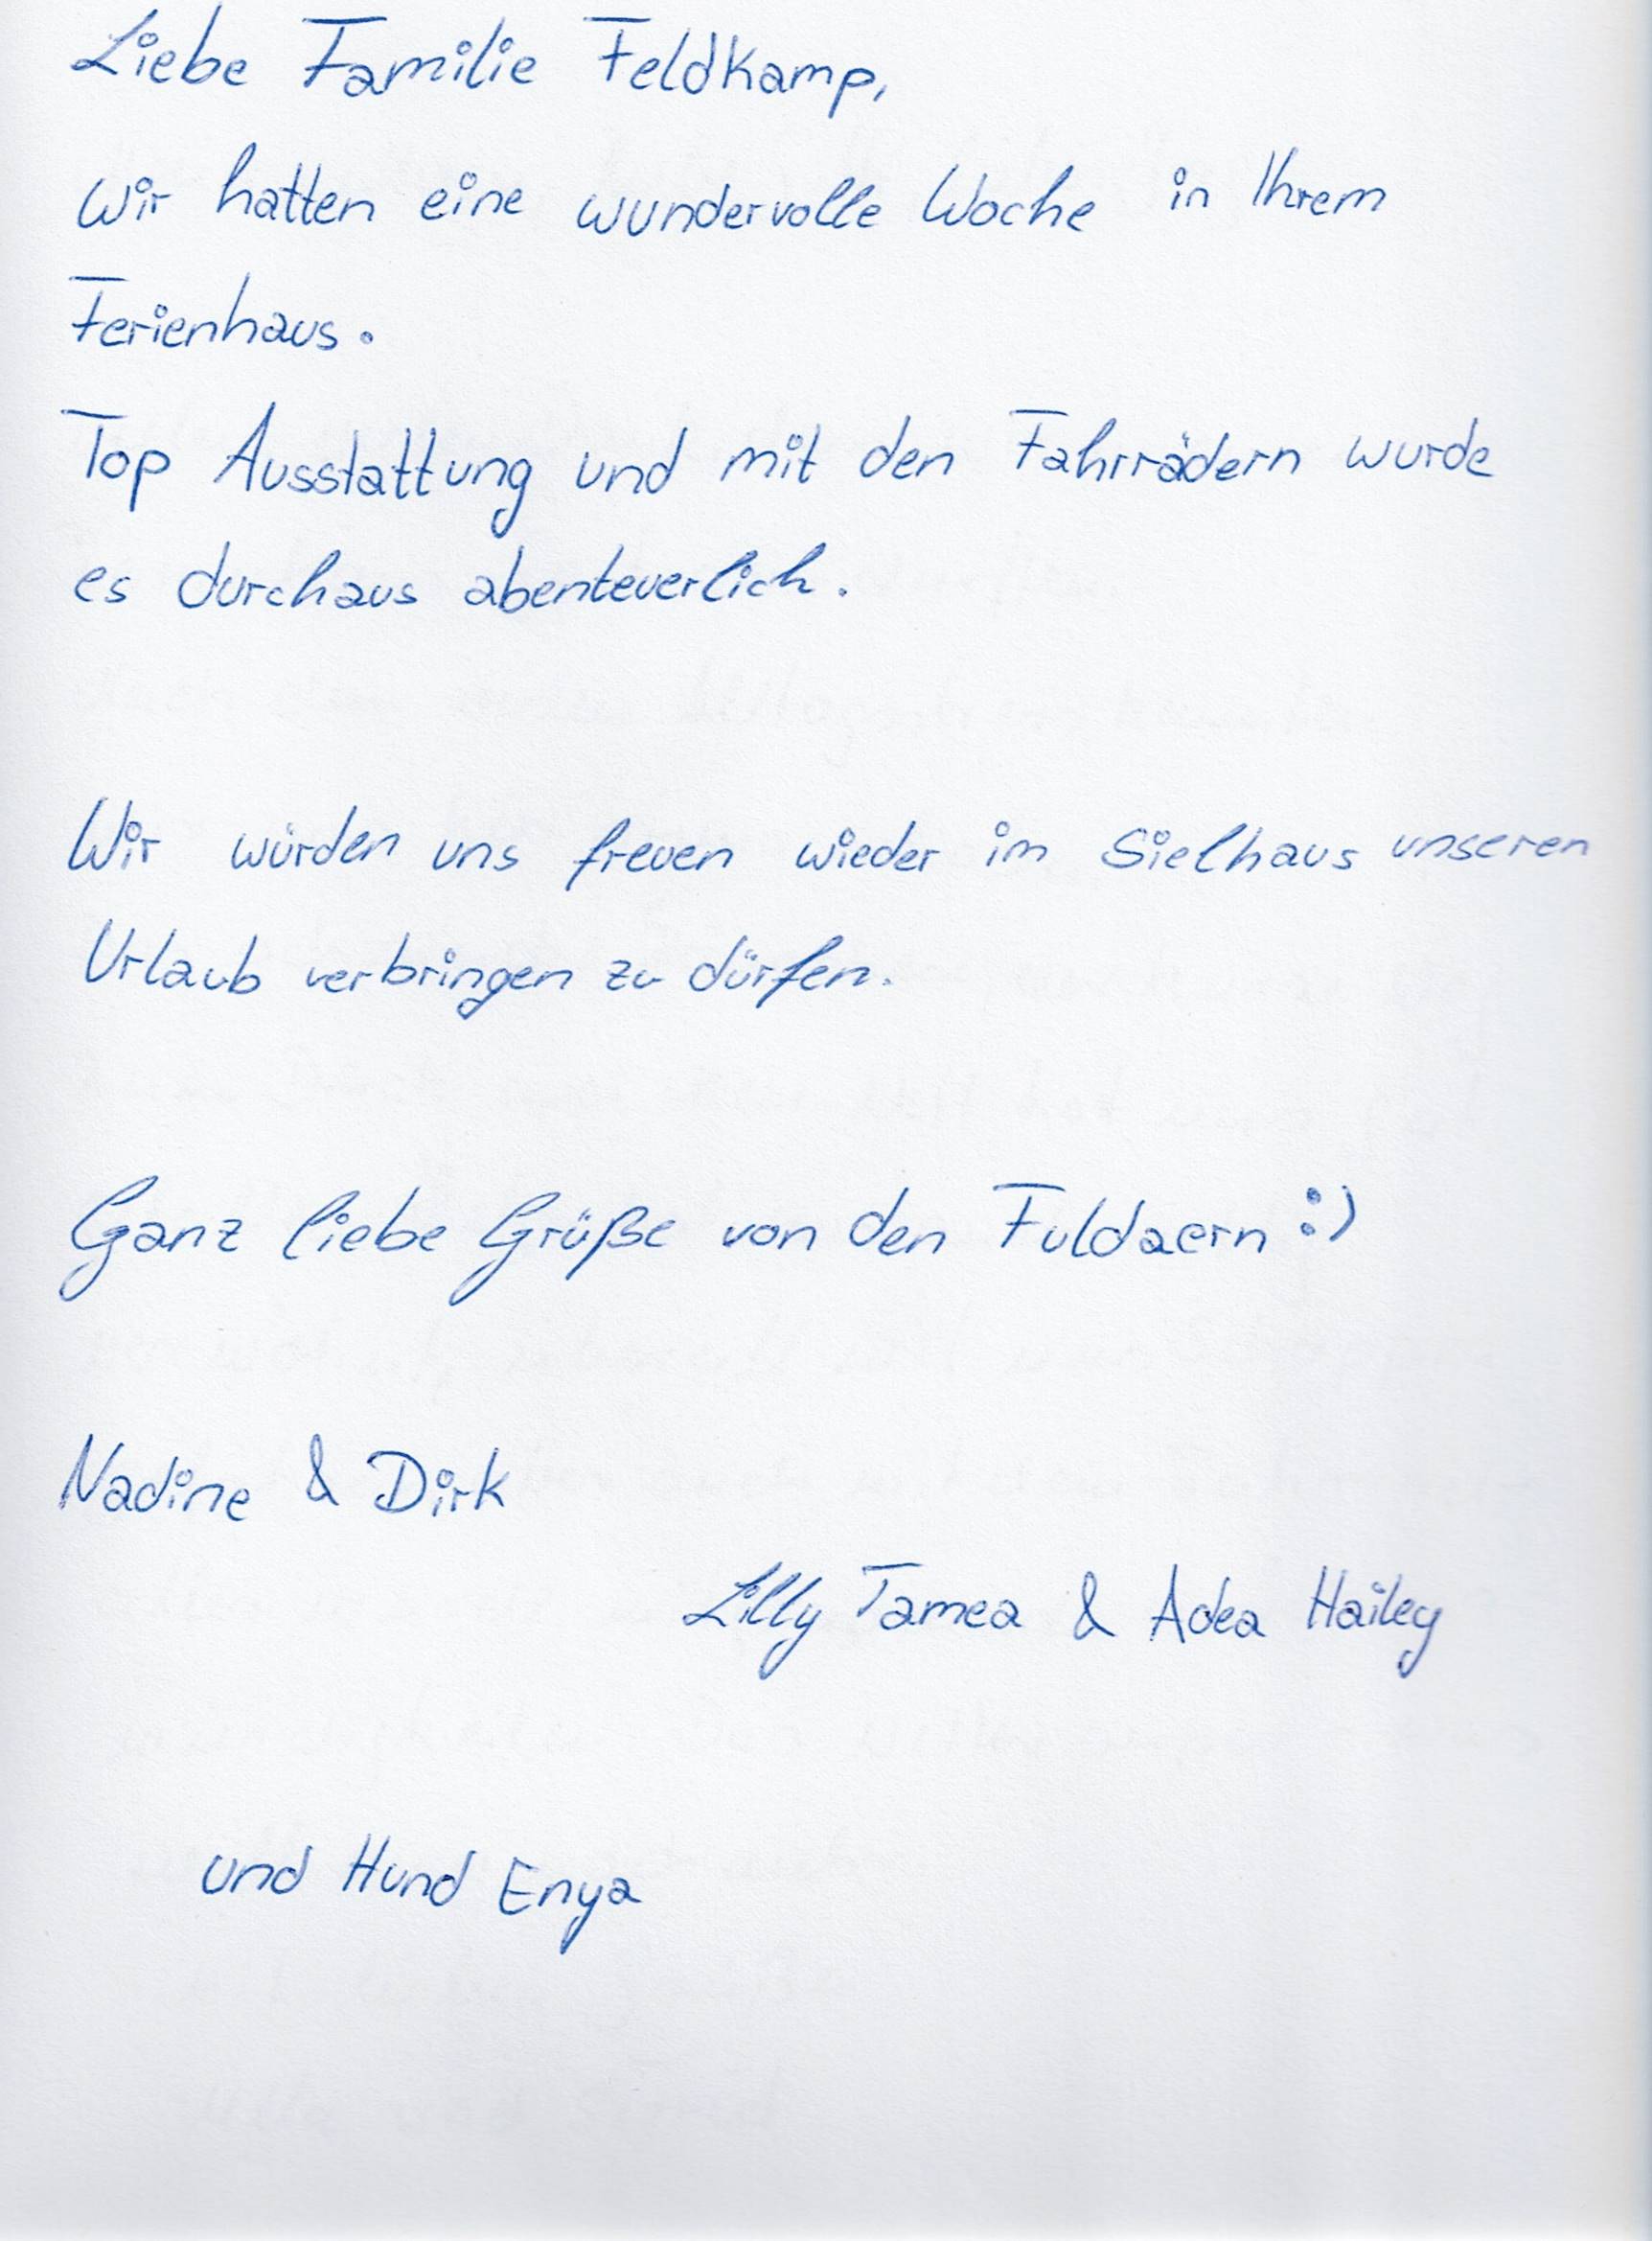 Liebe Familie Feldkamp,
wir hatten eine wundervolle Woche in Ihrem
Ferienhaus.
Top Ausstattung und mit den Fahrrädern wurde
es durchaus abenteuerlich.
Wir würden uns freuen wieder im Sielhaus unseren
Urlaub verbringen zu dürfen.
Ganz liebe Grüße von den Fuldaern :)
Nadine & Dirk
Lilly Tamea & Adea Hailey
und Hund Enya